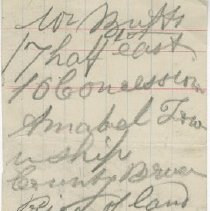 lot
17 half east
10 Concession
Amabel Tow
nship
County Bruce
of land